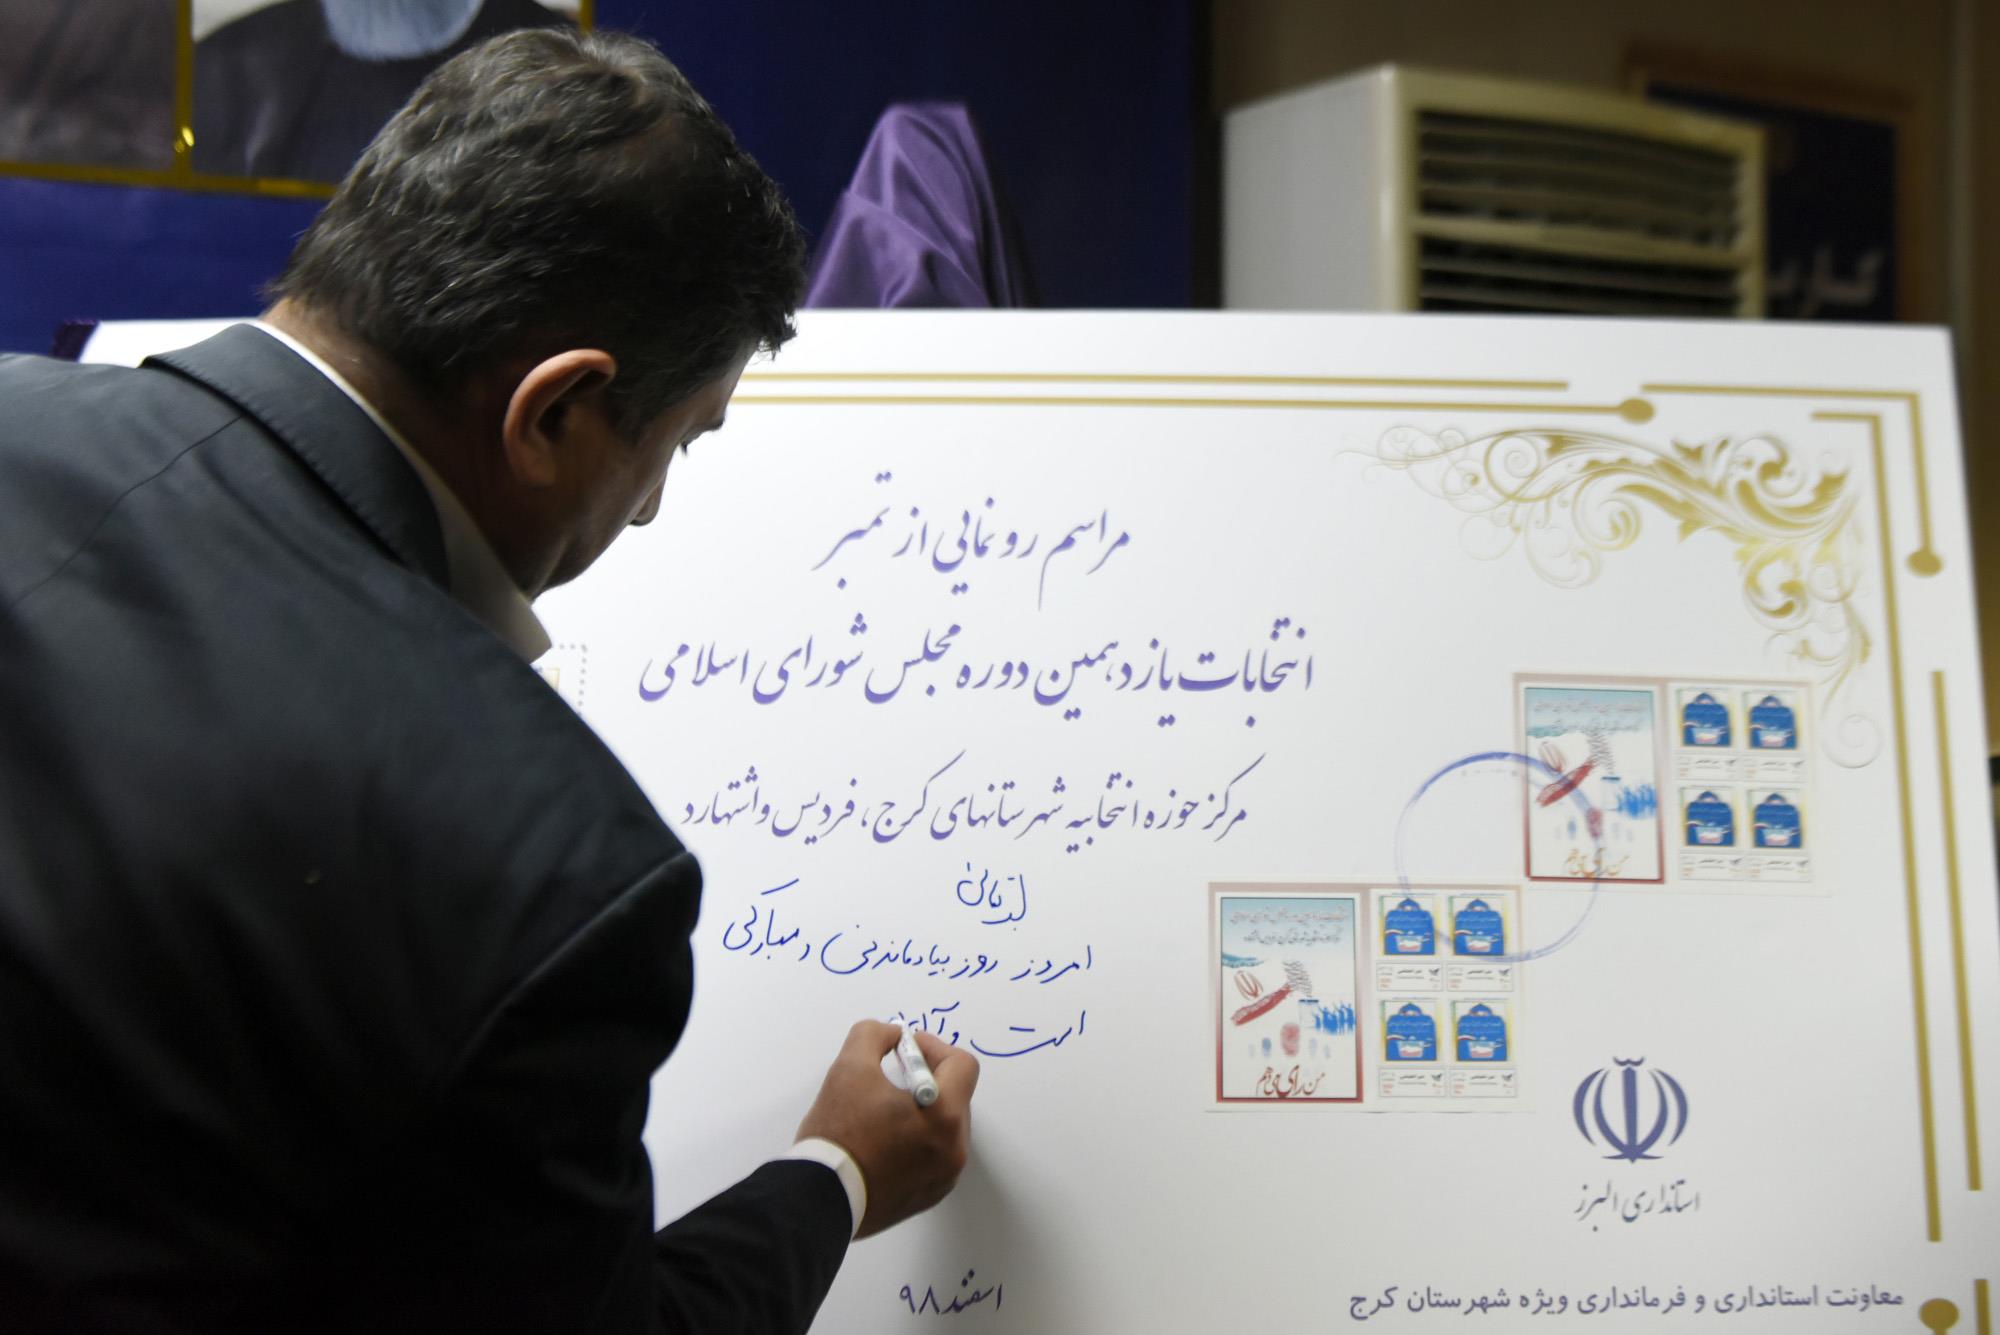 مراسم رونمایی از تمبر
انتخابات یازدهمین دوره مجلس شورای اسلامی
مرکز حوزه انتخابیه شهرستانهای کرج، فردیس و اشتهارد
امروز روز بیادماندنی و مبارکی
است و
من رای می دهم
من رای می دهم
استانداری البرز
اسفند ۹۸
معاونت استانداری و فرمانداری ویژه شهرستان کرج